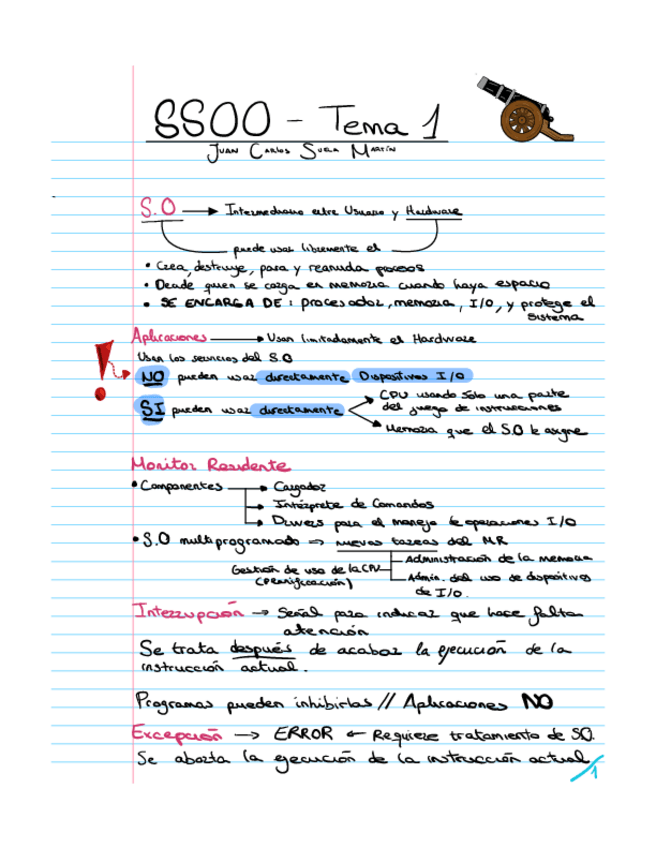 SSOO - Tema 1
JUAN CARLOS SUELA MARTÍN
S.O → Intermediario entre Usuario y Hardware
puede usar libremente el
• Crea, destruye, para y reanuda procesos
• Decide quien se carga en memoria cuando haya espacio
• SE ENCARGA DE: procesador, memoria, I/O, y protege el
sistema
Aplicaciones → Usan limitadamente el Hardware
Usan los servicios del S.O
NO pueden usar directamente Dispositivos I/O
CPU usando solo una parte
del juego de instrucciones
SI pueden usar directamente
Memoria que el S.O le asigne
Monitor Residente
• Componentes → Cargador
→ Intérprete de Comandos
→ Drivers para el manejo de operaciones I/O
• S.O multiprogramado => nuevas tareas del MR
Administración de la memoria
Gestión de uso de la CPU
(planificación)
Admin. del uso de dispositivos
de I/O.
Interrupción → Señal para indicar que hace falta
atención
Se trata después de acabar la ejecución de la
instrucción actual.
Programas pueden inhibirlas // Aplicaciones NO
Excepción → ERROR ← Requiere tratamiento de SO.
Se aborta la ejecución de la instrucción actual
1